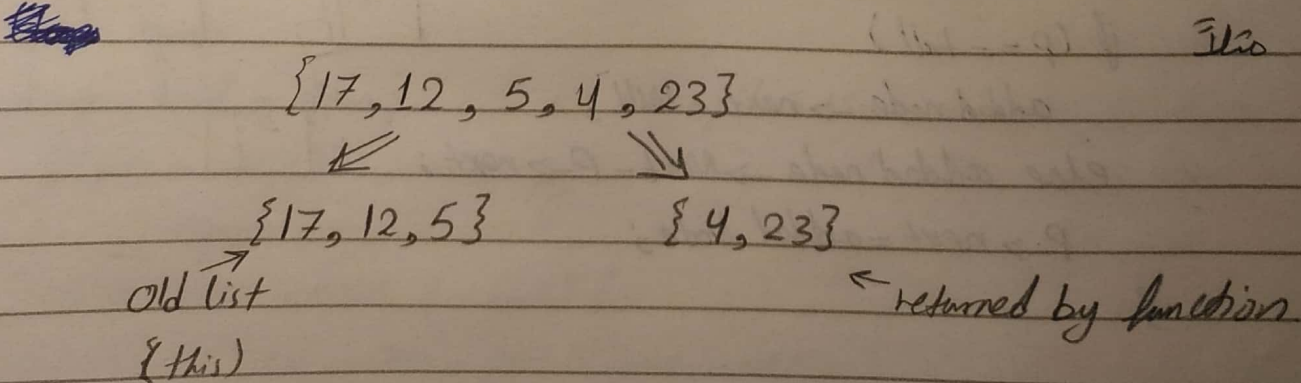 {17, 12, 5, 4, 23}
{17, 12, 5} {4, 23}
old list
{this)
returned by function